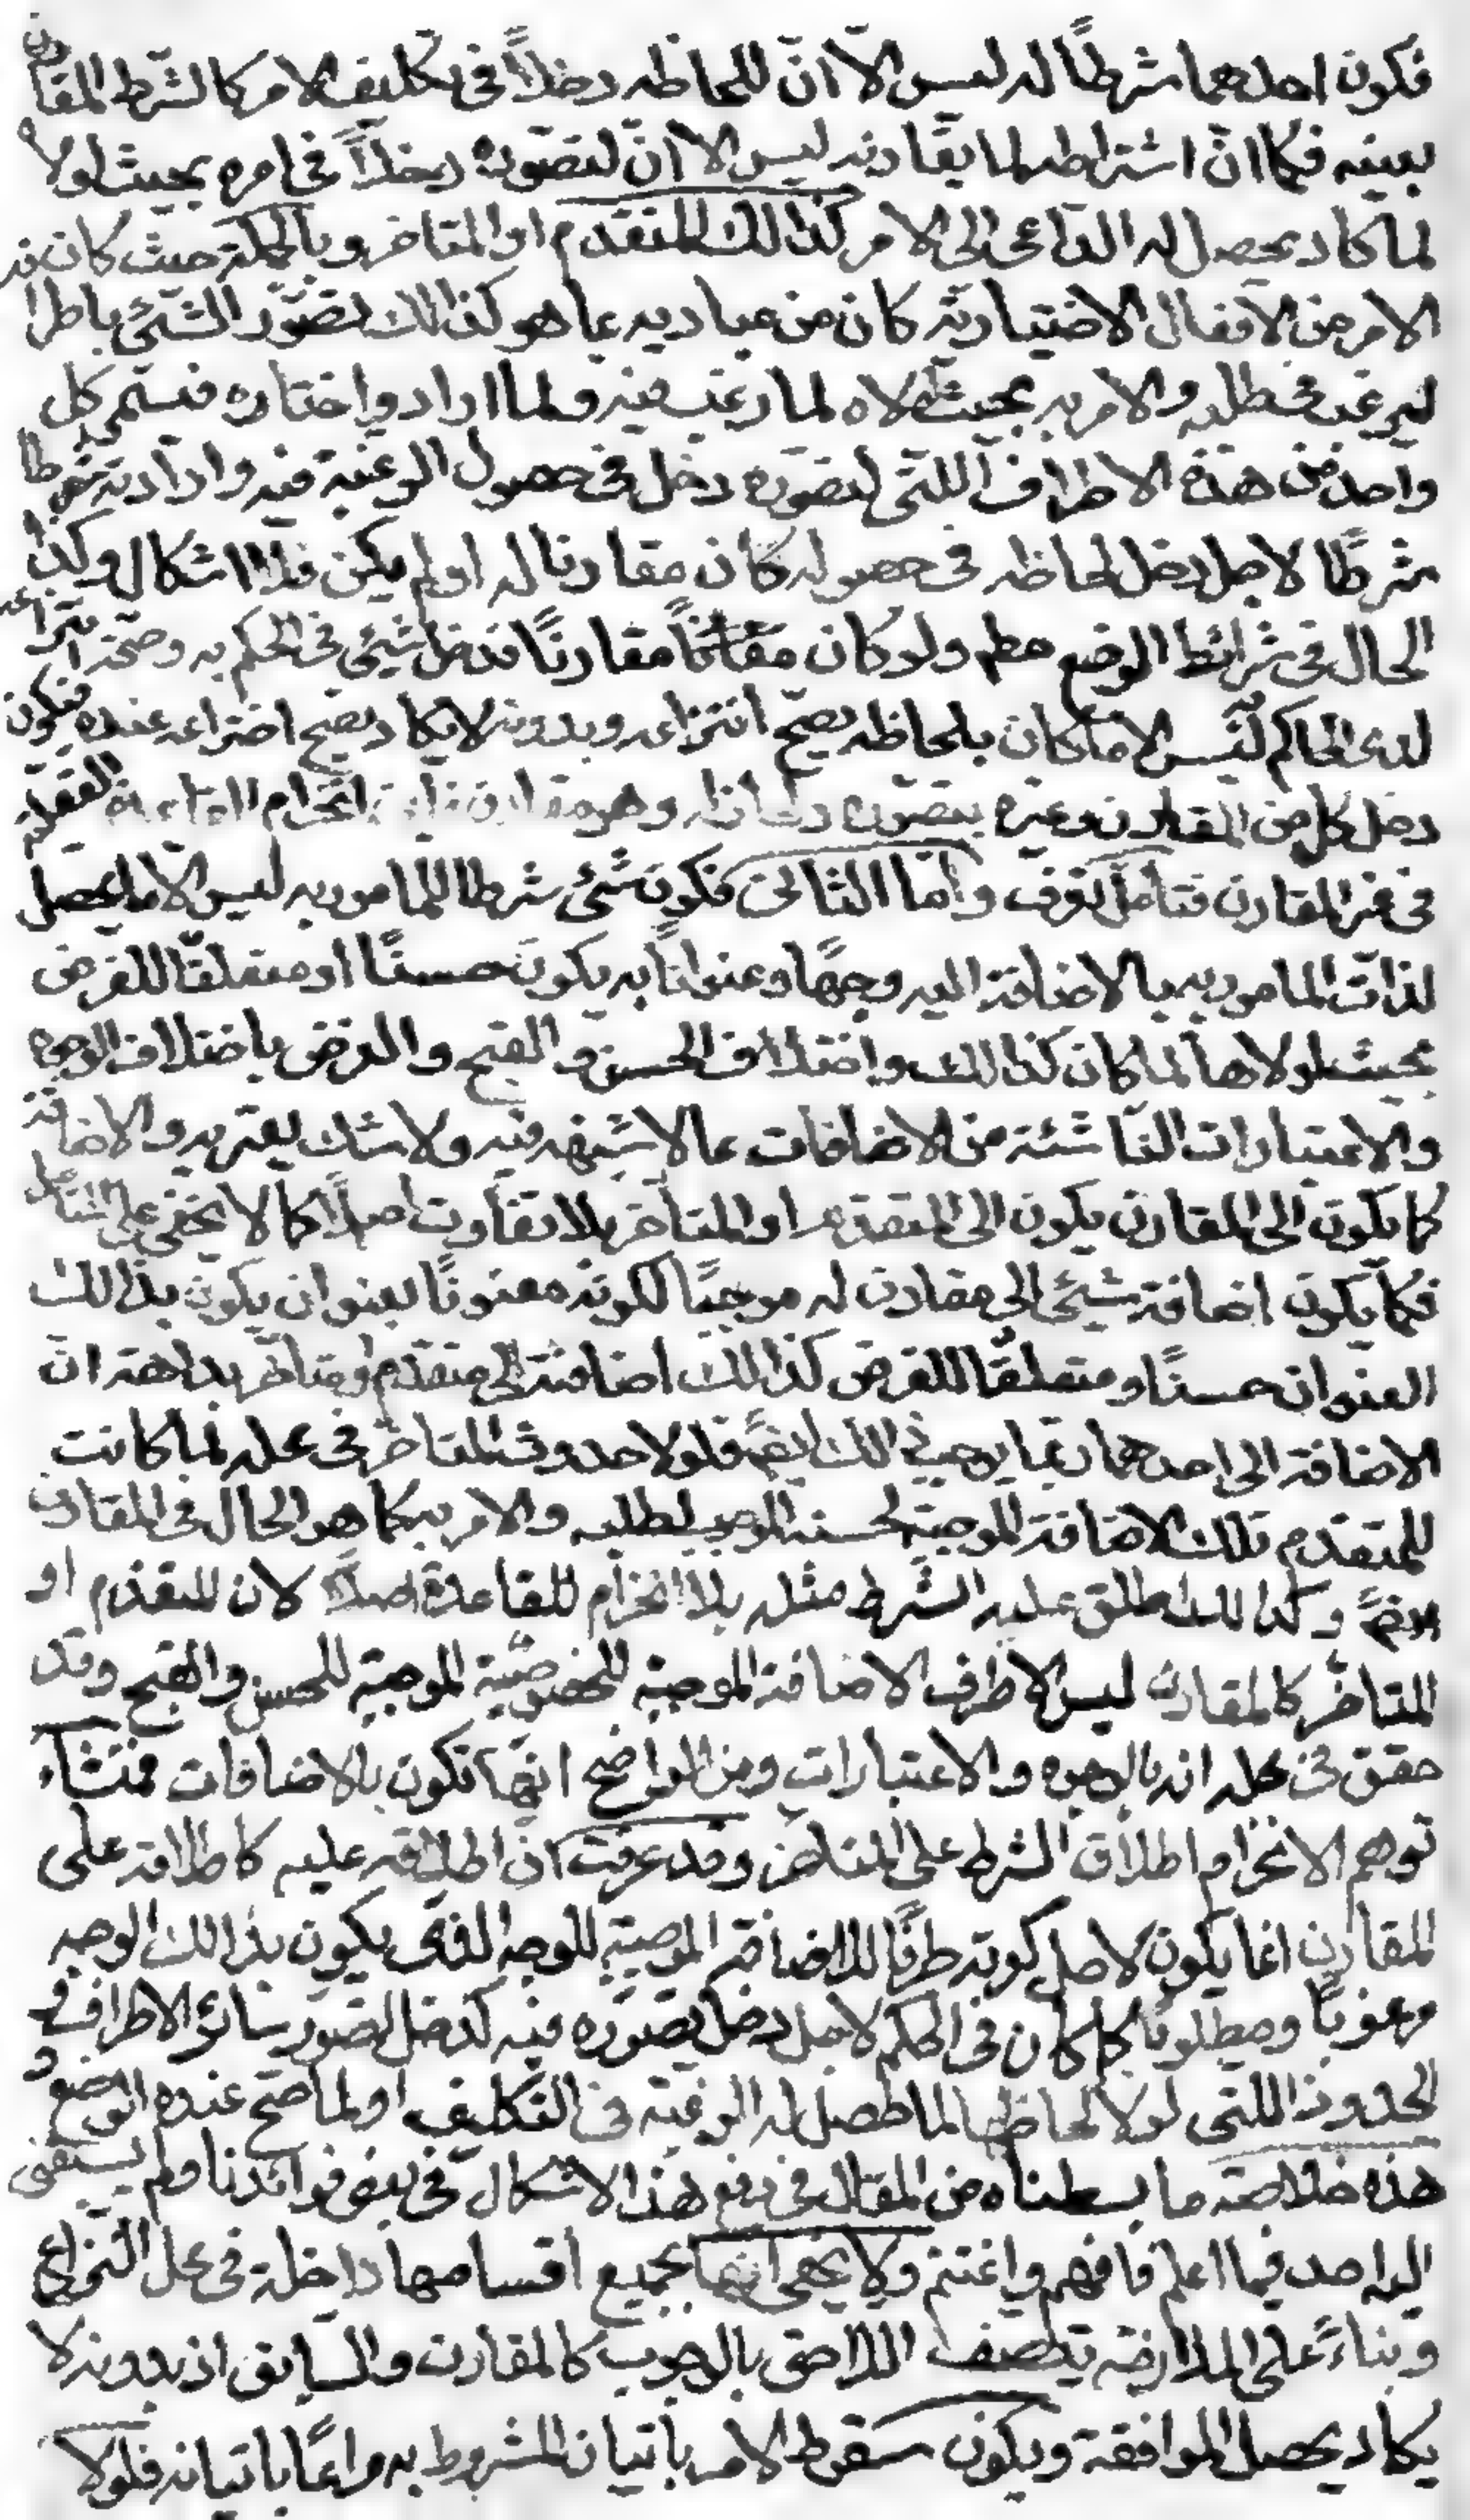 فكون احدهما شرطاً له ليس الّا انّ للحاظه دخلاً فى تكليف الامر كالشرط المقارن
بعينه فكما انّ اشتراطه لما يقارنه ليس الا انّ لتصوره دخلاً فى امره بحيث لولاه
لما كاد يحصل له الداعى الى الامر كذالك المتقدم او المتاخر وبالجملة حيث كان
الامر من الافعال الاختيارية كان من مباديه بما هو كذالك تصوّر الشئ باطرا
ليرغب فى طلبه والامر به بحيث لولاه لما رغب فيه ولما اراد واختاره فيسمى كل
واحد من هذه الاطراف اللتى لتصوره دخل فى حصول الرغبة فيه وارادته
شرطاً لاجل دخل لحاظه فى حصوله كان مقارنا له او لم يكن فلا اشكال وكذا
الحال فى شرائط الوضع مطم ولو كان مقارناً فدخل شيئى فى الحكم به وصحّة انتزاعه
لدى الحاكم ليس الا ما كان بلحاظه يصحّ انتزاعه وبدونه لا يكاد يصح اختراعه عنده فيكون
دخل كل من المقارن وغيره بتصوره ولحاظه وهو مقارن فاين انخرام القاعدة العقلية
فى غير المقارن فتامل تعرف وامّا الثانى فكون شئى شرطا للمامور به ليس الا ما يحصل
لذات المامور به بالاضافة اليه وجهاً وعنواناً به يكون حسنًا او متعلقّا للغرض
بحيث لولاها لما كان كذالك واختلاف الحسن والقبح والغرض باختلاف الوجوه
والاعتبارات الناشئة من الاضافات مما لا شبهه فيه ولا شك يعتريه والاضافة
كما يكون الى المقارن يكون الى المتقدم او المتأخر بلا تفاوت اصلاً كما لا يخفى على المتأمل
فكما يكون اضافة شيئى الى مقارن له موجباً لكونه معنونًا بعنوان يكون بذالك
العنوان حسنًا ومتعلقّا للغرض كذالك اضافته الى متقدم او متاخر بداهة ان
الاضافة الى احدهما ربّما يوجب ذالك ايضً فلولا حدوث المتاخر فى محله لما كانت
للمتقدم تلك الاضافة الموجبة لحسنه الموجب لطلبه والامر به كما هو الحال فى المقارن
ايضً وكذالك اطلق عليه الشرط مثله بلا انخرام للقاعدة اصلاً لان المتقدم او
المتاخر كالمقارن ليس الا طرف الاضافة الموجبة للخصوصّية الموجبة للحسن والقبح وقد
حقق فى محله انه بالوجوه والاعتبارات ومن الواضح انّها تكون بالاضافات فمنشاء
توهم الانخرام اطلاق الشرط على المتاخر وقد عرفت انّ اطلاقه عليه كاطلاقه على
المقارن انما يكون لاجل كونه طرفًا للاضافة الموجبة للوجه الذى يكون بذالك الوجه
مرغوبًا ومطلوبًا كما كان فى الحكم لاجل دخل تصوره فيه كدخل تصور سائر الاطراف و
الحدود اللتى لولا لحاظها لما حصل له الرغبة فى التكليف او لما صح عنده الوضع و
هذه خلاصة ما بسطناه من المقال فى دفع هذا الاشكال فى بعض فوائدنا ولم يسبقنى
اليه احد فيما اعلم فافهم واغتنم ولا يخفى انّها بجميع اقسامها داخلة فى محل النزاع
وبناءً على الملازمة يتصف اللاحق بالوجوب كالمقارن والسابق اذ بدونه لا
يكاد يحصل الموافقة ويكون سقوط الامر باتيان المشروط به مراعًا باتيانه فلولا